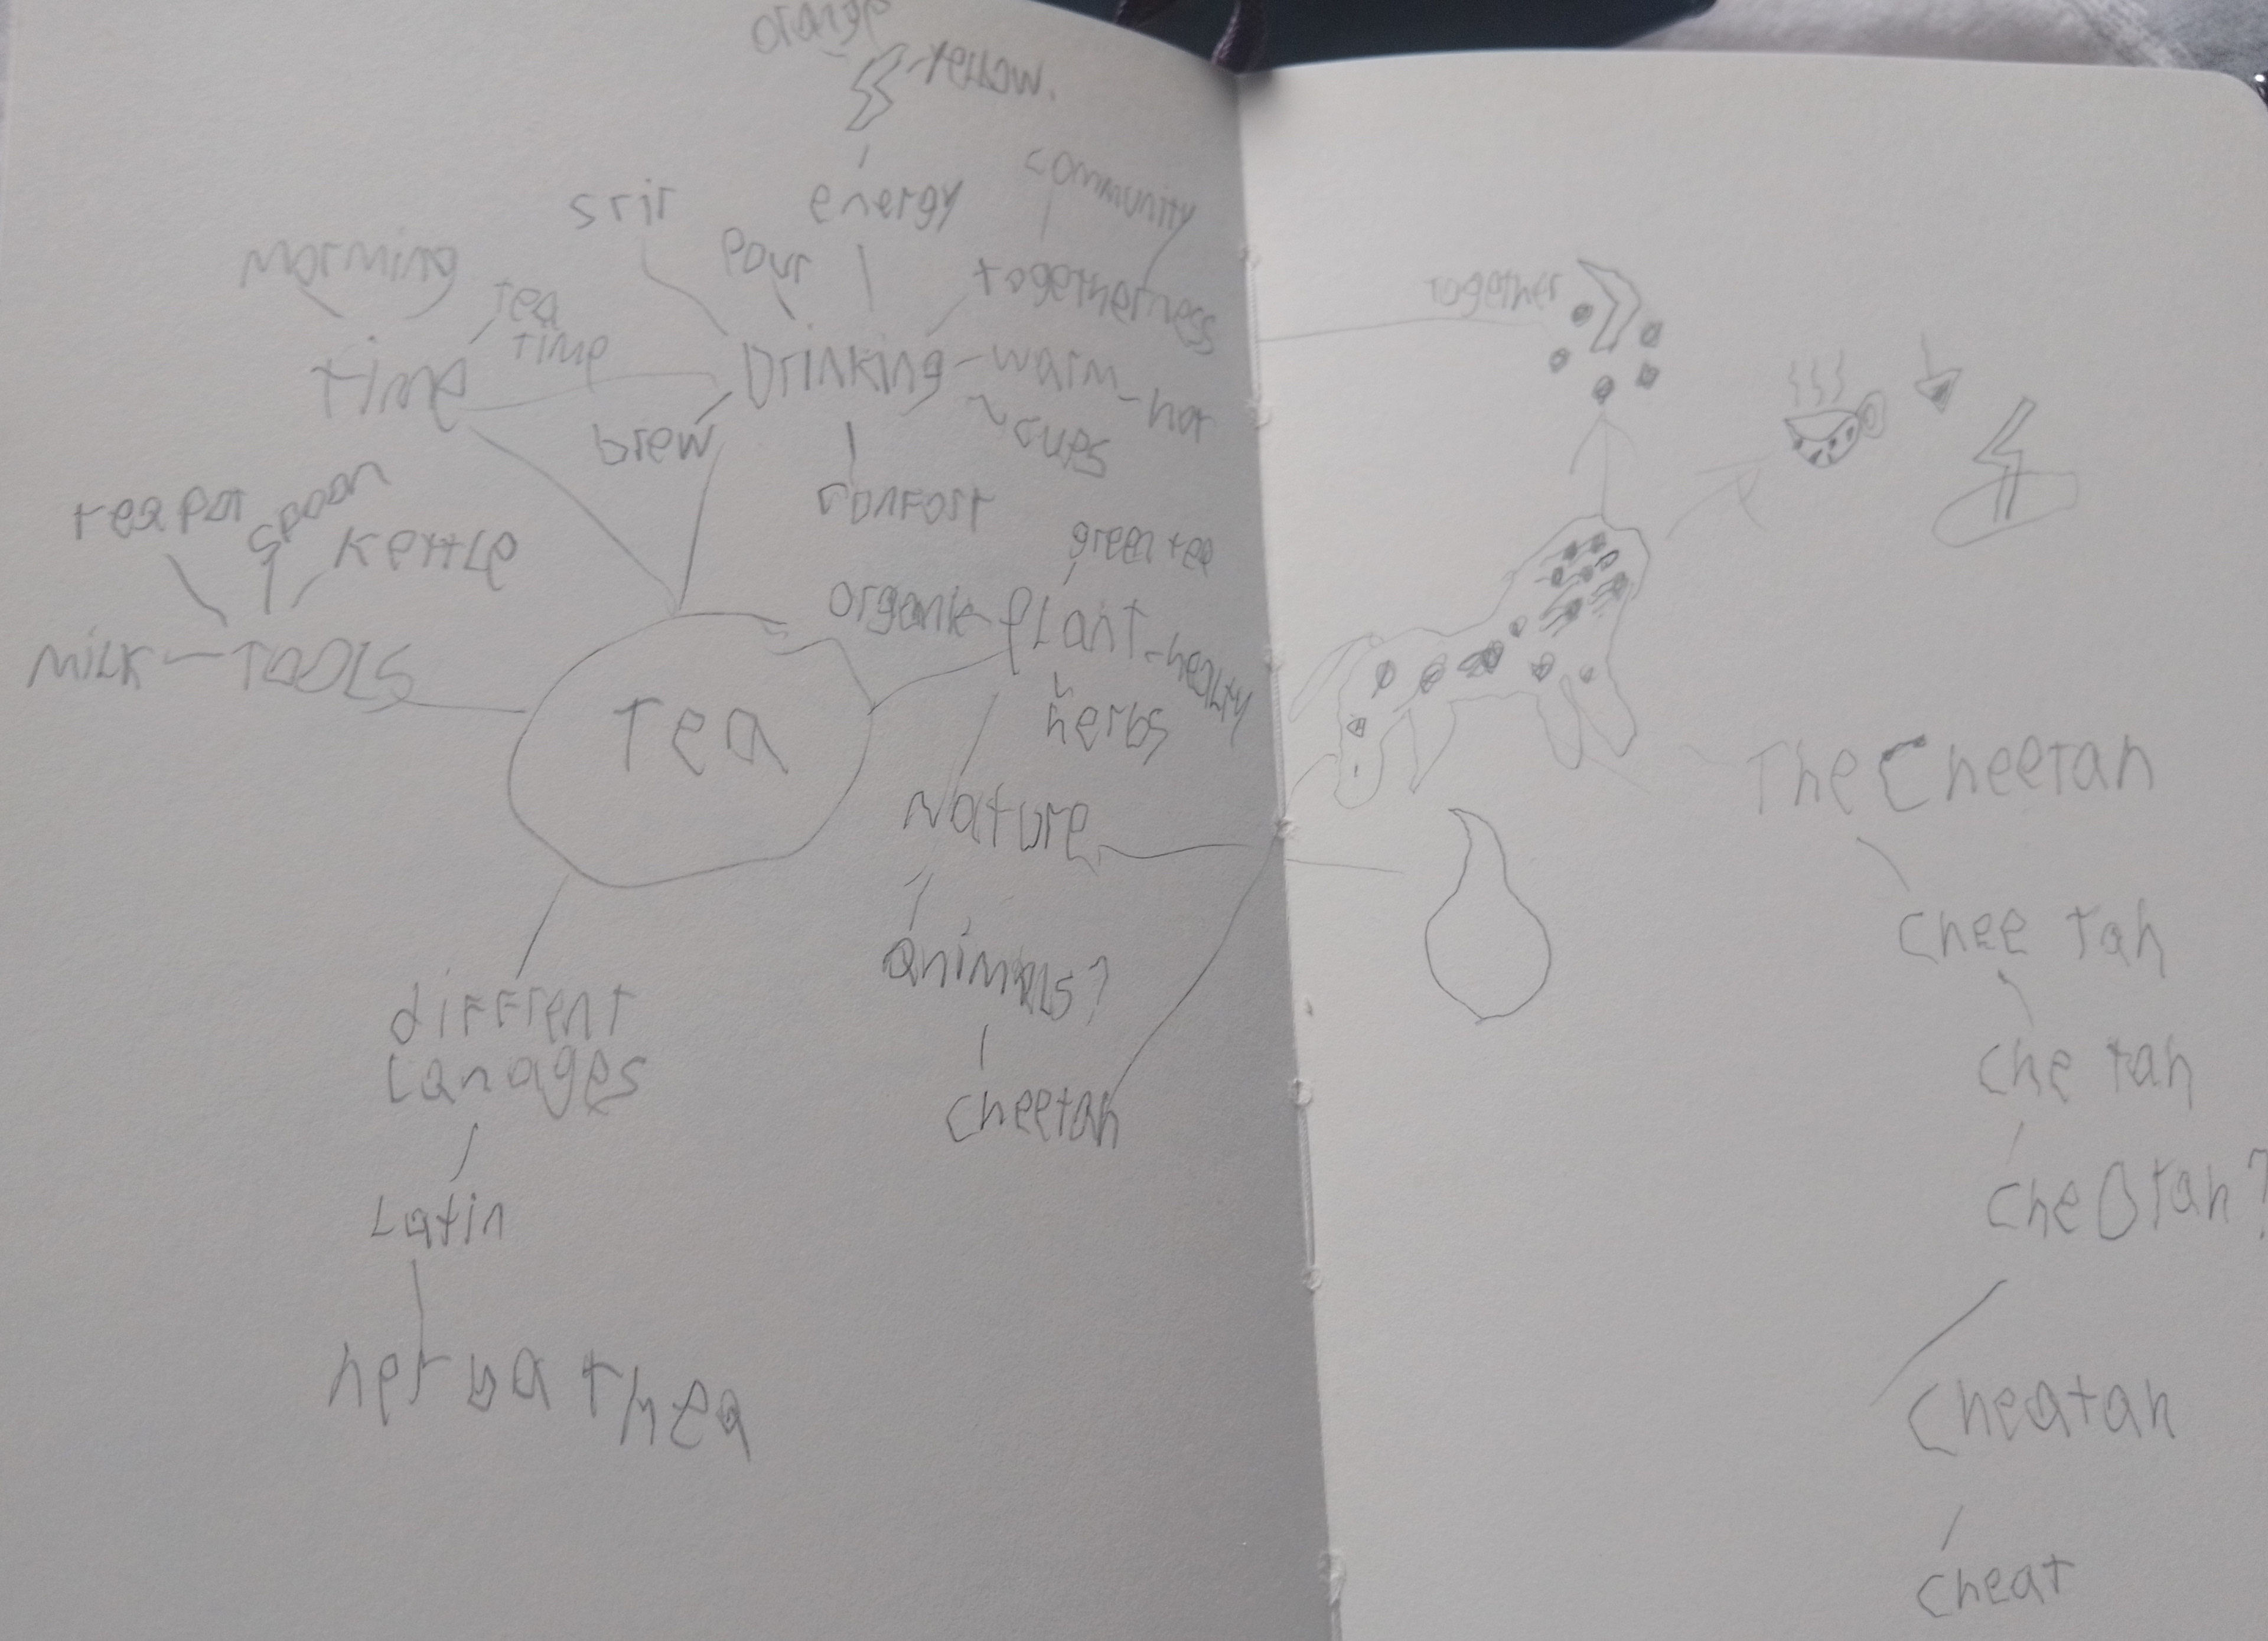 orange
yellow.
energy
community
srir
pour
togetherness
morming
tea
time
time
Drinking
warm
hot
brew
cups
confort
teapot
spoon
kettle
milk
TOOLS
green tea
organik
plant
healty
herbs
Tea
Nature
animals?
cheetah
diffrent
lanages
Latin
herba thea
Together
The Cheetah
Chee Tah
Che tah
Che O tah?
Cheatah
cheat